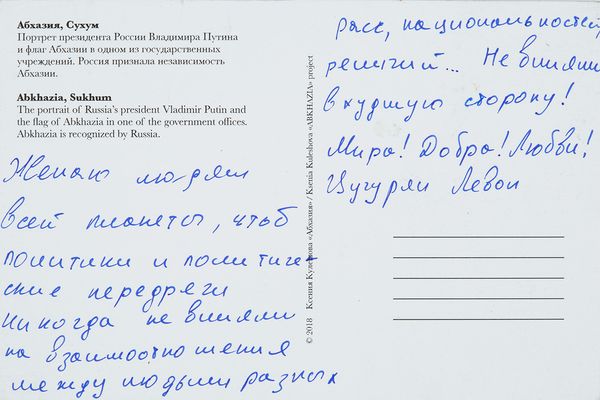 Абхазия, Сухум
Портрет президента России Владимира Путина
и флаг Абхазии в одном из государственных
учреждений. Россия признала независимость
Абхазии.
Abkhazia, Sukhum
The portrait of Russia's president Vladimir Putin and
the flag of Abkhazia in one of the government offices.
Abkhazia is recognized by Russia.
Желаю людям
всей планеты, чтоб
политики и политиче-
ские передряги
никогда не влияли
на взаимоотношения
между людьми разных
расс, национальностей,
религий... Не влияли
в худшую сторону!
Мира! Добра! Любви!
Цугурян Левон
© 2018 Ксения Кулешова «Абхазия» / Ksenia Kuleshova «ABKHAZIA» project